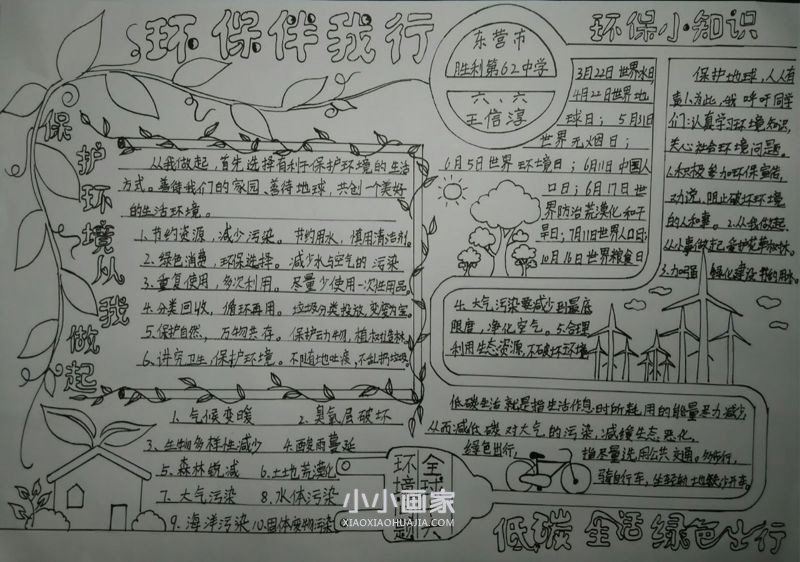 环保伴我行
保护环境从我做起
从我做起，首先选择有利于保护环境的生活
方式。善待我们的家园、善待地球，共创一个美好
的生活环境。
1.节约资源，减少污染。节约用水，慎用清洁剂。
2.绿色消费，环保选择。减少水与空气的污染
3.重复使用，多次利用。尽量少使用一次性用品。
4.分类回收，循环再用。垃圾分类投放，变废为宝。
5.保护自然，万物共存。保护动物，植树造林。
6.讲究卫生，保护环境。不随地吐痰，不乱扔垃圾。
1、气候变暖 2、臭氧层破坏
3、生物多样性减少 4、酸雨蔓延
5、森林锐减 6、土地荒漠化
7、大气污染 8、水体污染
9、海洋污染 10、固体废物污染
全球
环境
题
东营市
胜利第62中学
六、六
王信淳
环保小知识
3月22日世界水日
4月22日世界地
球日；5月31日
世界无烟日；
6月5日世界环境日；6月11日中国人
口日；6月17日世
界防治荒漠化和干
旱日；7月11日世界人口日；
10月16日世界粮食日
保护地球，人人有
责。为此，我呼吁同学
们：认真学习环境知识，
关心社会环境问题。
1.积极参加环保宣传，
劝说、阻止破坏环境
的人和事。2.从我做起，
从小事做起，爱护花草和树林。
绿化建设，节约用水。
4.大气污染要减少到最底
限度，净化空气。5.合理
利用生态资源，不破坏环境
低碳生活就是指生活作息时所耗用的能量尽力减少，
从而减低碳对大气的污染，减缓生态恶化，
绿色出行，
指尽量选用公共交通，
骑自行车，
低碳生活绿色出行
小小画家
XIAOXIAOHUAJIA.COM